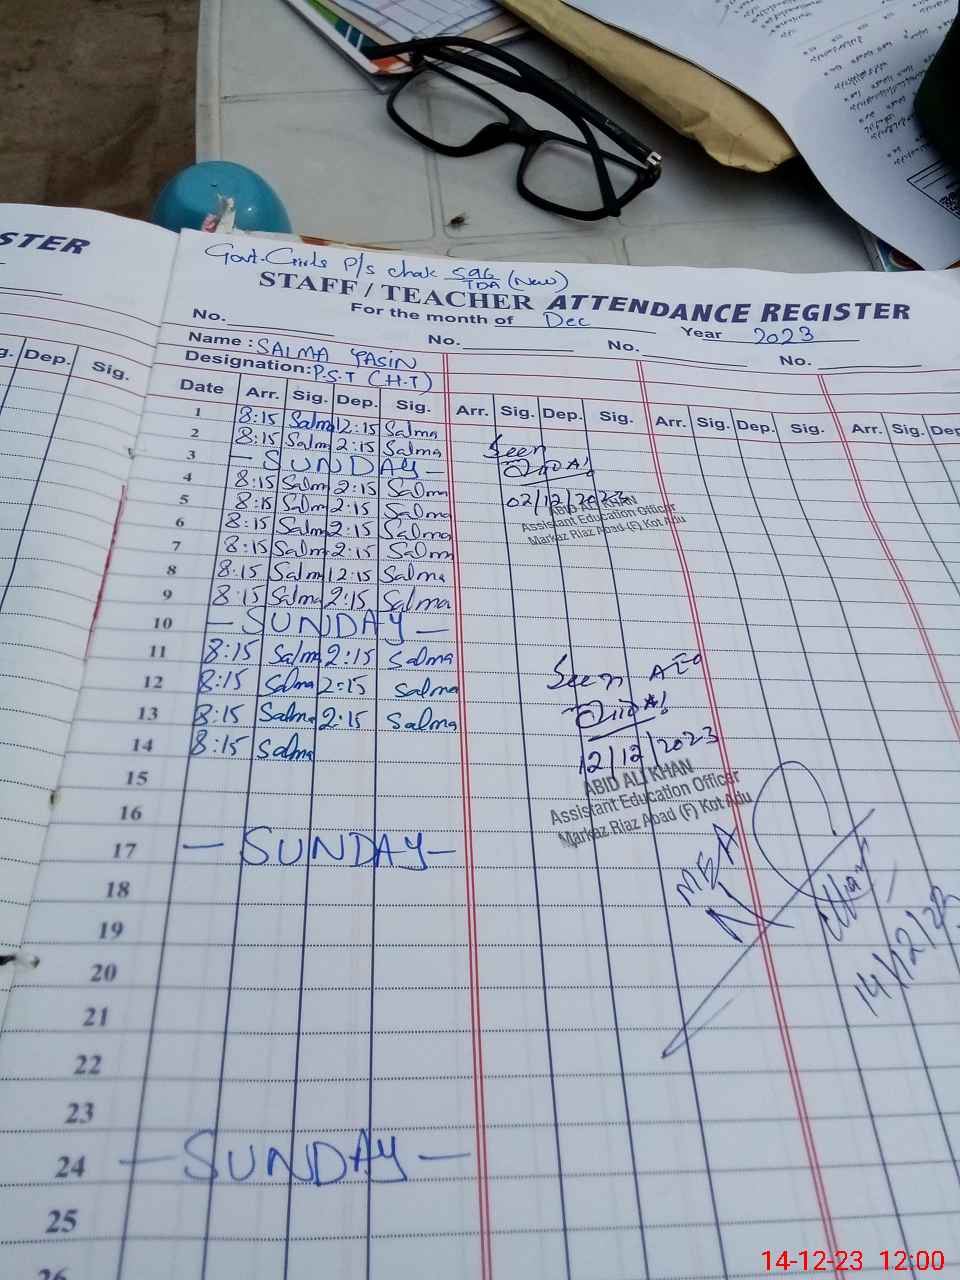 STER
g. Dep. Sig.
Govt. Girls P/S chak 596/TDA (New)
STAFF / TEACHER ATTENDANCE REGISTER
For the month of Dec Year 2023
No. No. No. No.
Name : SALMA YASIN
Designation: P.S.T (H.T)
Date Arr. Sig. Dep. Sig. Arr. Sig. Dep. Sig. Arr. Sig. Dep. Sig. Arr. Sig. Dep
1 8:15 Salma 12:15 Salma
2 8:15 Salma 2:15 Salma
3 — SUNDAY —
4 8:15 Salma 2:15 Salma
5 8:15 Salma 2:15 Salma
6 8:15 Salma 2:15 Salma
7 8:15 Salma 2:15 Salma
8 8:15 Salma 12:15 Salma
9 8:15 Salma 2:15 Salma
10 — SUNDAY —
11 8:15 Salma 2:15 Salma
12 8:15 Salma 2:15 Salma
13 8:15 Salma 2:15 Salma
14 8:15 Salma
15
16
17 — SUNDAY —
18
19
20
21
22
23
24 — SUNDAY —
25
26
Seen
02/12/2023
ABID ALI KHAN
Assistant Education Officer
Markaz Riaz Abad (F) Kot Adu
Seen AEO
12/12/2023
ABID ALI KHAN
Assistant Education Officer
Markaz Riaz Abad (F) Kot Adu
MEA
14/12/23
14-12-23 12:00